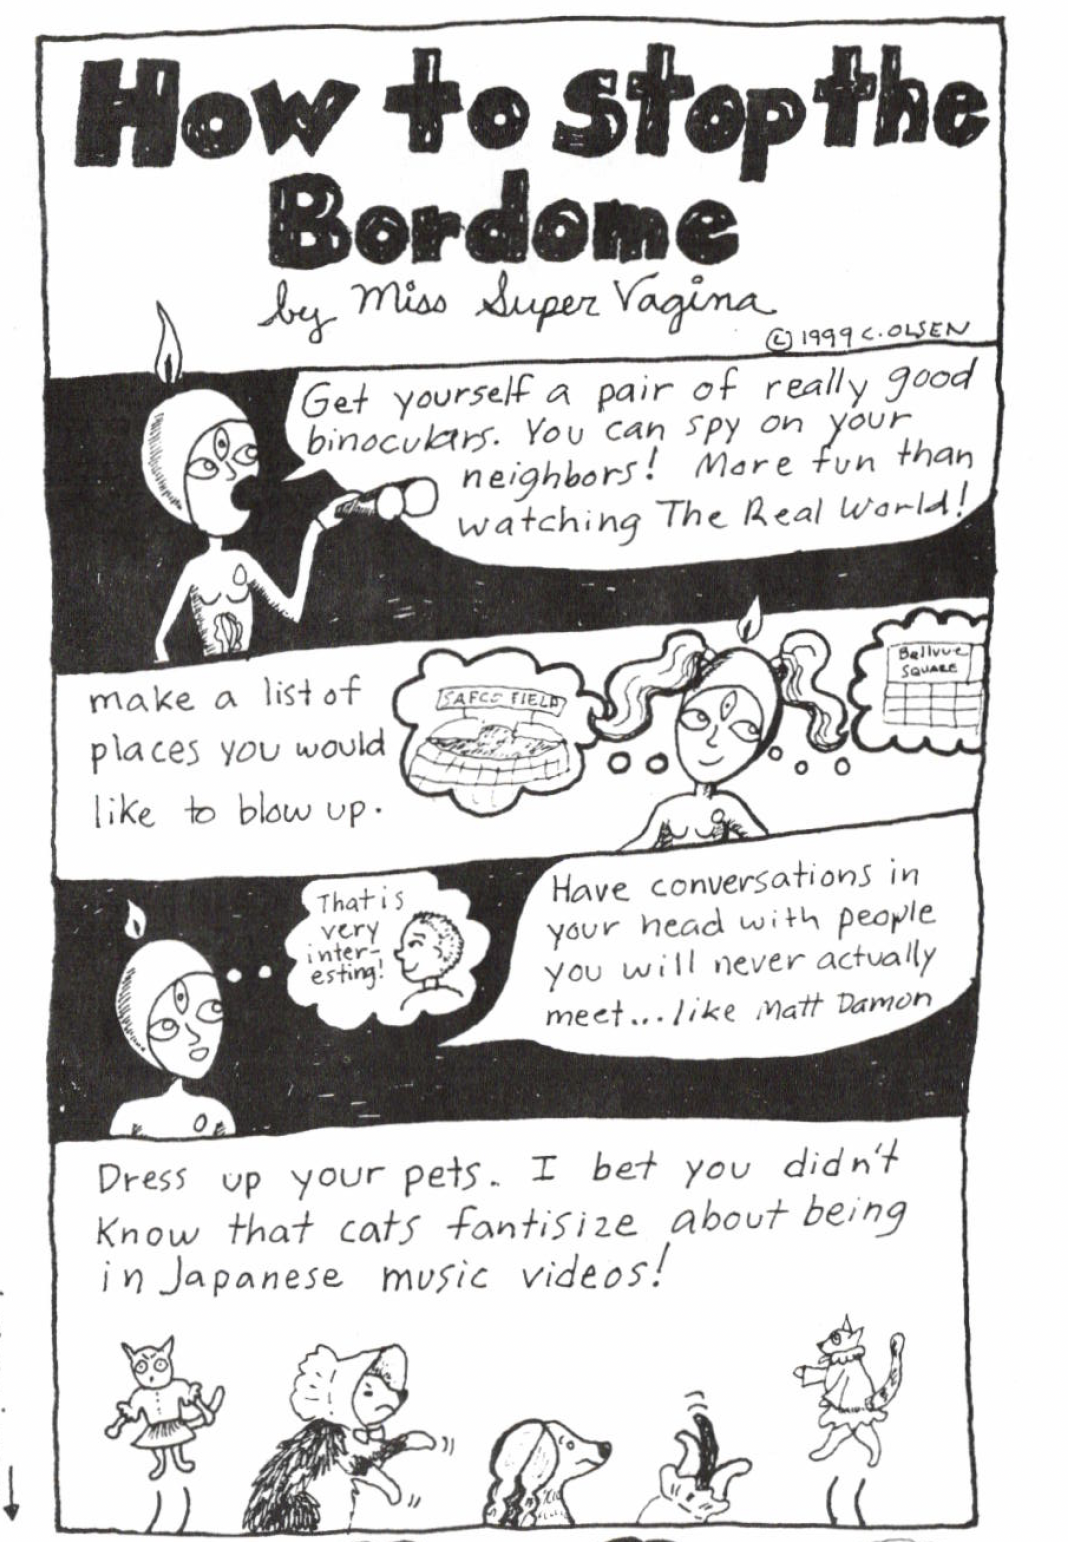 How to stop the
Bordome
by Miss Super Vagina
© 1999 C. OLSEN
Get yourself a pair of really good
binoculars. You can spy on your
neighbors! More fun than
watching The Real World!
make a list of
places you would
like to blow up.
SAFCO FIELD
Bellvue
SQUARE
That is
very
inter-
esting!
Have conversations in
your head with people
you will never actually
meet...like Matt Damon
Dress up your pets. I bet you didn't
Know that cats fantisize about being
in Japanese music videos!